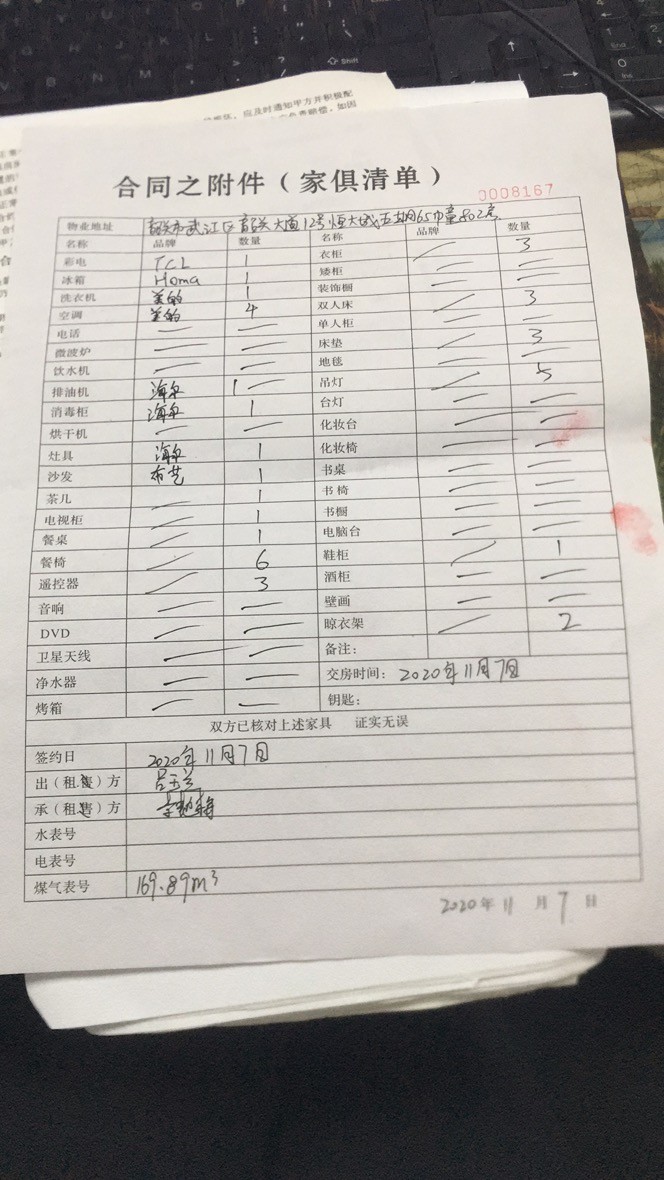 应及时通知甲方并积极配
合同之附件（家俱清单）
0008167
物业地址 韶关市武江区韶关大道12号恒大城
名称 品牌 数量 名称 品牌 数量
彩电 TCL 1 衣柜 3
冰箱 Homa 1 矮柜
洗衣机 美的 1 装饰橱
空调 美的 4 双人床 3
电话 单人柜
微波炉 床垫 3
饮水机 地毯
排油机 1 吊灯 5
消毒柜 1 台灯
烘干机 化妆台
灶具 1 化妆椅
沙发 布艺 1 书桌
茶几 1 书椅
电视柜 1 书橱
餐桌 1 电脑台
餐椅 6 鞋柜 1
遥控器 3 酒柜
音响 壁画
DVD 晾衣架 2
卫星天线 备注：
净水器 交房时间：2020年11月7日
烤箱 钥匙：
双方已核对上述家具 证实无误
签约日 2020年11月7日
出（租、）方 吕玉兰
承（租、）方
水表号
电表号
煤气表号 169.89m³
2020年11月7日